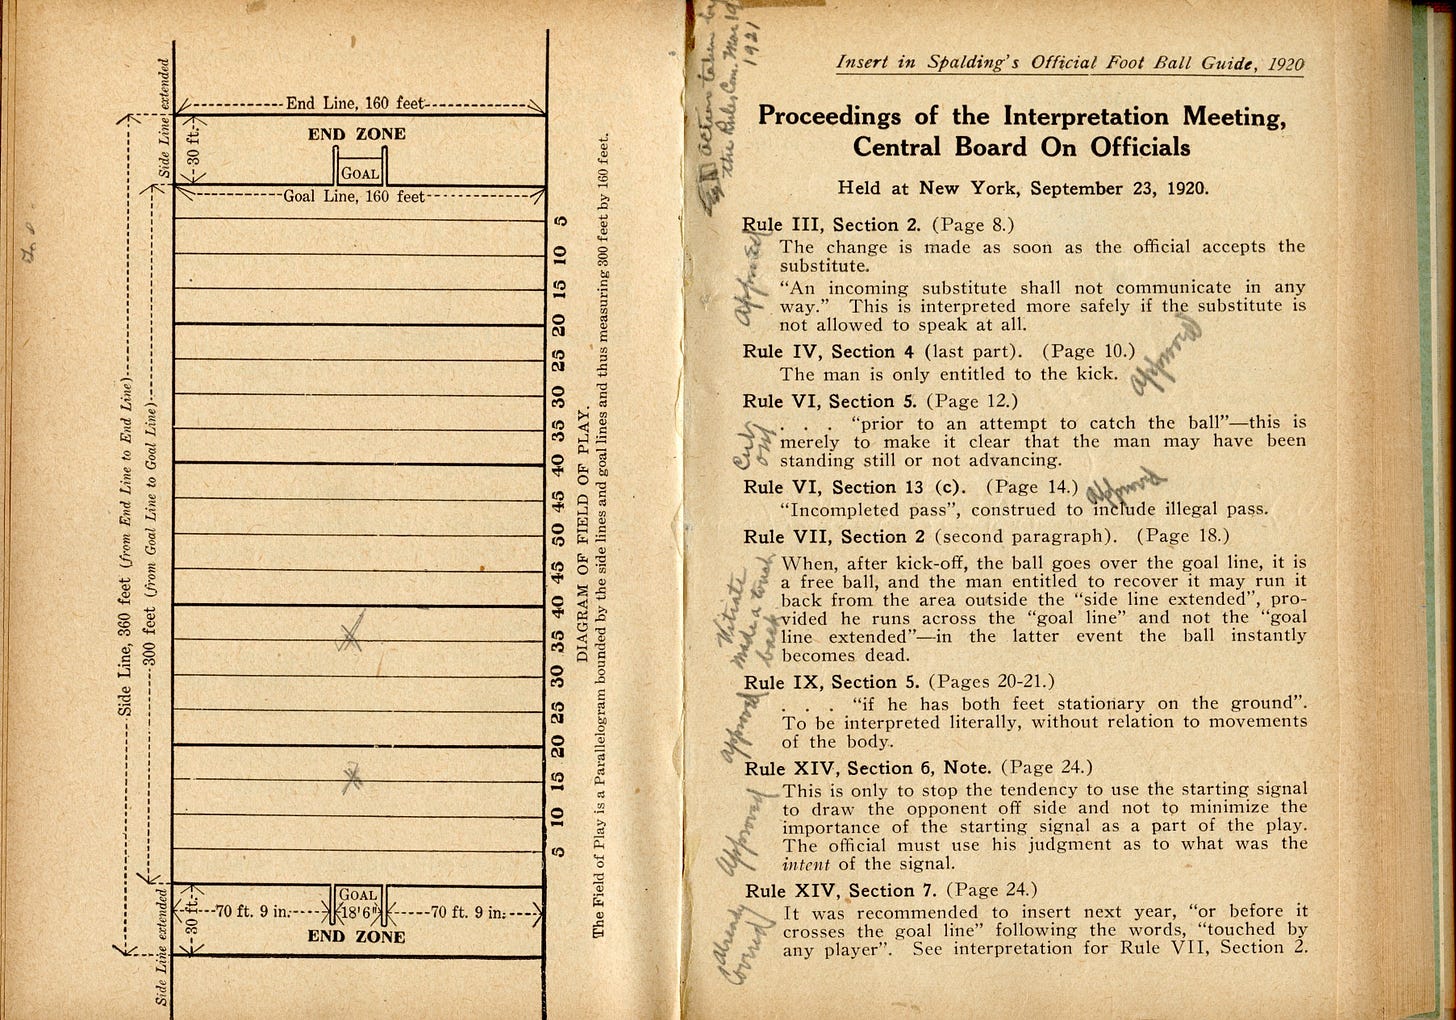 Side Line extended
End Line, 160 feet
END ZONE
30 ft.
GOAL
Goal Line, 160 feet
5
10
15
20
25
30
35
40
45
50
45
40
35
30
25
20
15
10
5
Side Line, 360 feet (from End Line to End Line)
300 feet (from Goal Line to Goal Line)
DIAGRAM OF FIELD OF PLAY.
The Field of Play is a Parallelogram bounded by the side lines and goal lines and thus measuring 300 feet by 160 feet.
GOAL
70 ft. 9 in. 18'6" 70 ft. 9 in.
30 ft.
END ZONE
Side Line extended
action taken by
the Rules Com. Mar 19
1921
Insert in Spalding's Official Foot Ball Guide, 1920
Proceedings of the Interpretation Meeting,
Central Board On Officials
Held at New York, September 23, 1920.
Rule III, Section 2. (Page 8.)
The change is made as soon as the official accepts the
substitute.
Approved
"An incoming substitute shall not communicate in any
way." This is interpreted more safely if the substitute is
not allowed to speak at all.
Rule IV, Section 4 (last part). (Page 10.)
Approved
The man is only entitled to the kick.
Rule VI, Section 5. (Page 12.)
Cut
out
. . . "prior to an attempt to catch the ball"—this is
merely to make it clear that the man may have been
standing still or not advancing.
Rule VI, Section 13 (c). (Page 14.)
Approved
"Incompleted pass", construed to include illegal pass.
Rule VII, Section 2 (second paragraph). (Page 18.)
made a touch
back
When, after kick-off, the ball goes over the goal line, it is
a free ball, and the man entitled to recover it may run it
back from the area outside the "side line extended", pro-
vided he runs across the "goal line" and not the "goal
line extended"—in the latter event the ball instantly
becomes dead.
Rule IX, Section 5. (Pages 20-21.)
Approved
. . . "if he has both feet stationary on the ground".
To be interpreted literally, without relation to movements
of the body.
Rule XIV, Section 6, Note. (Page 24.)
Approved
This is only to stop the tendency to use the starting signal
to draw the opponent off side and not to minimize the
importance of the starting signal as a part of the play.
The official must use his judgment as to what was the
intent of the signal.
Rule XIV, Section 7. (Page 24.)
already
covered
It was recommended to insert next year, "or before it
crosses the goal line" following the words, "touched by
any player". See interpretation for Rule VII, Section 2.